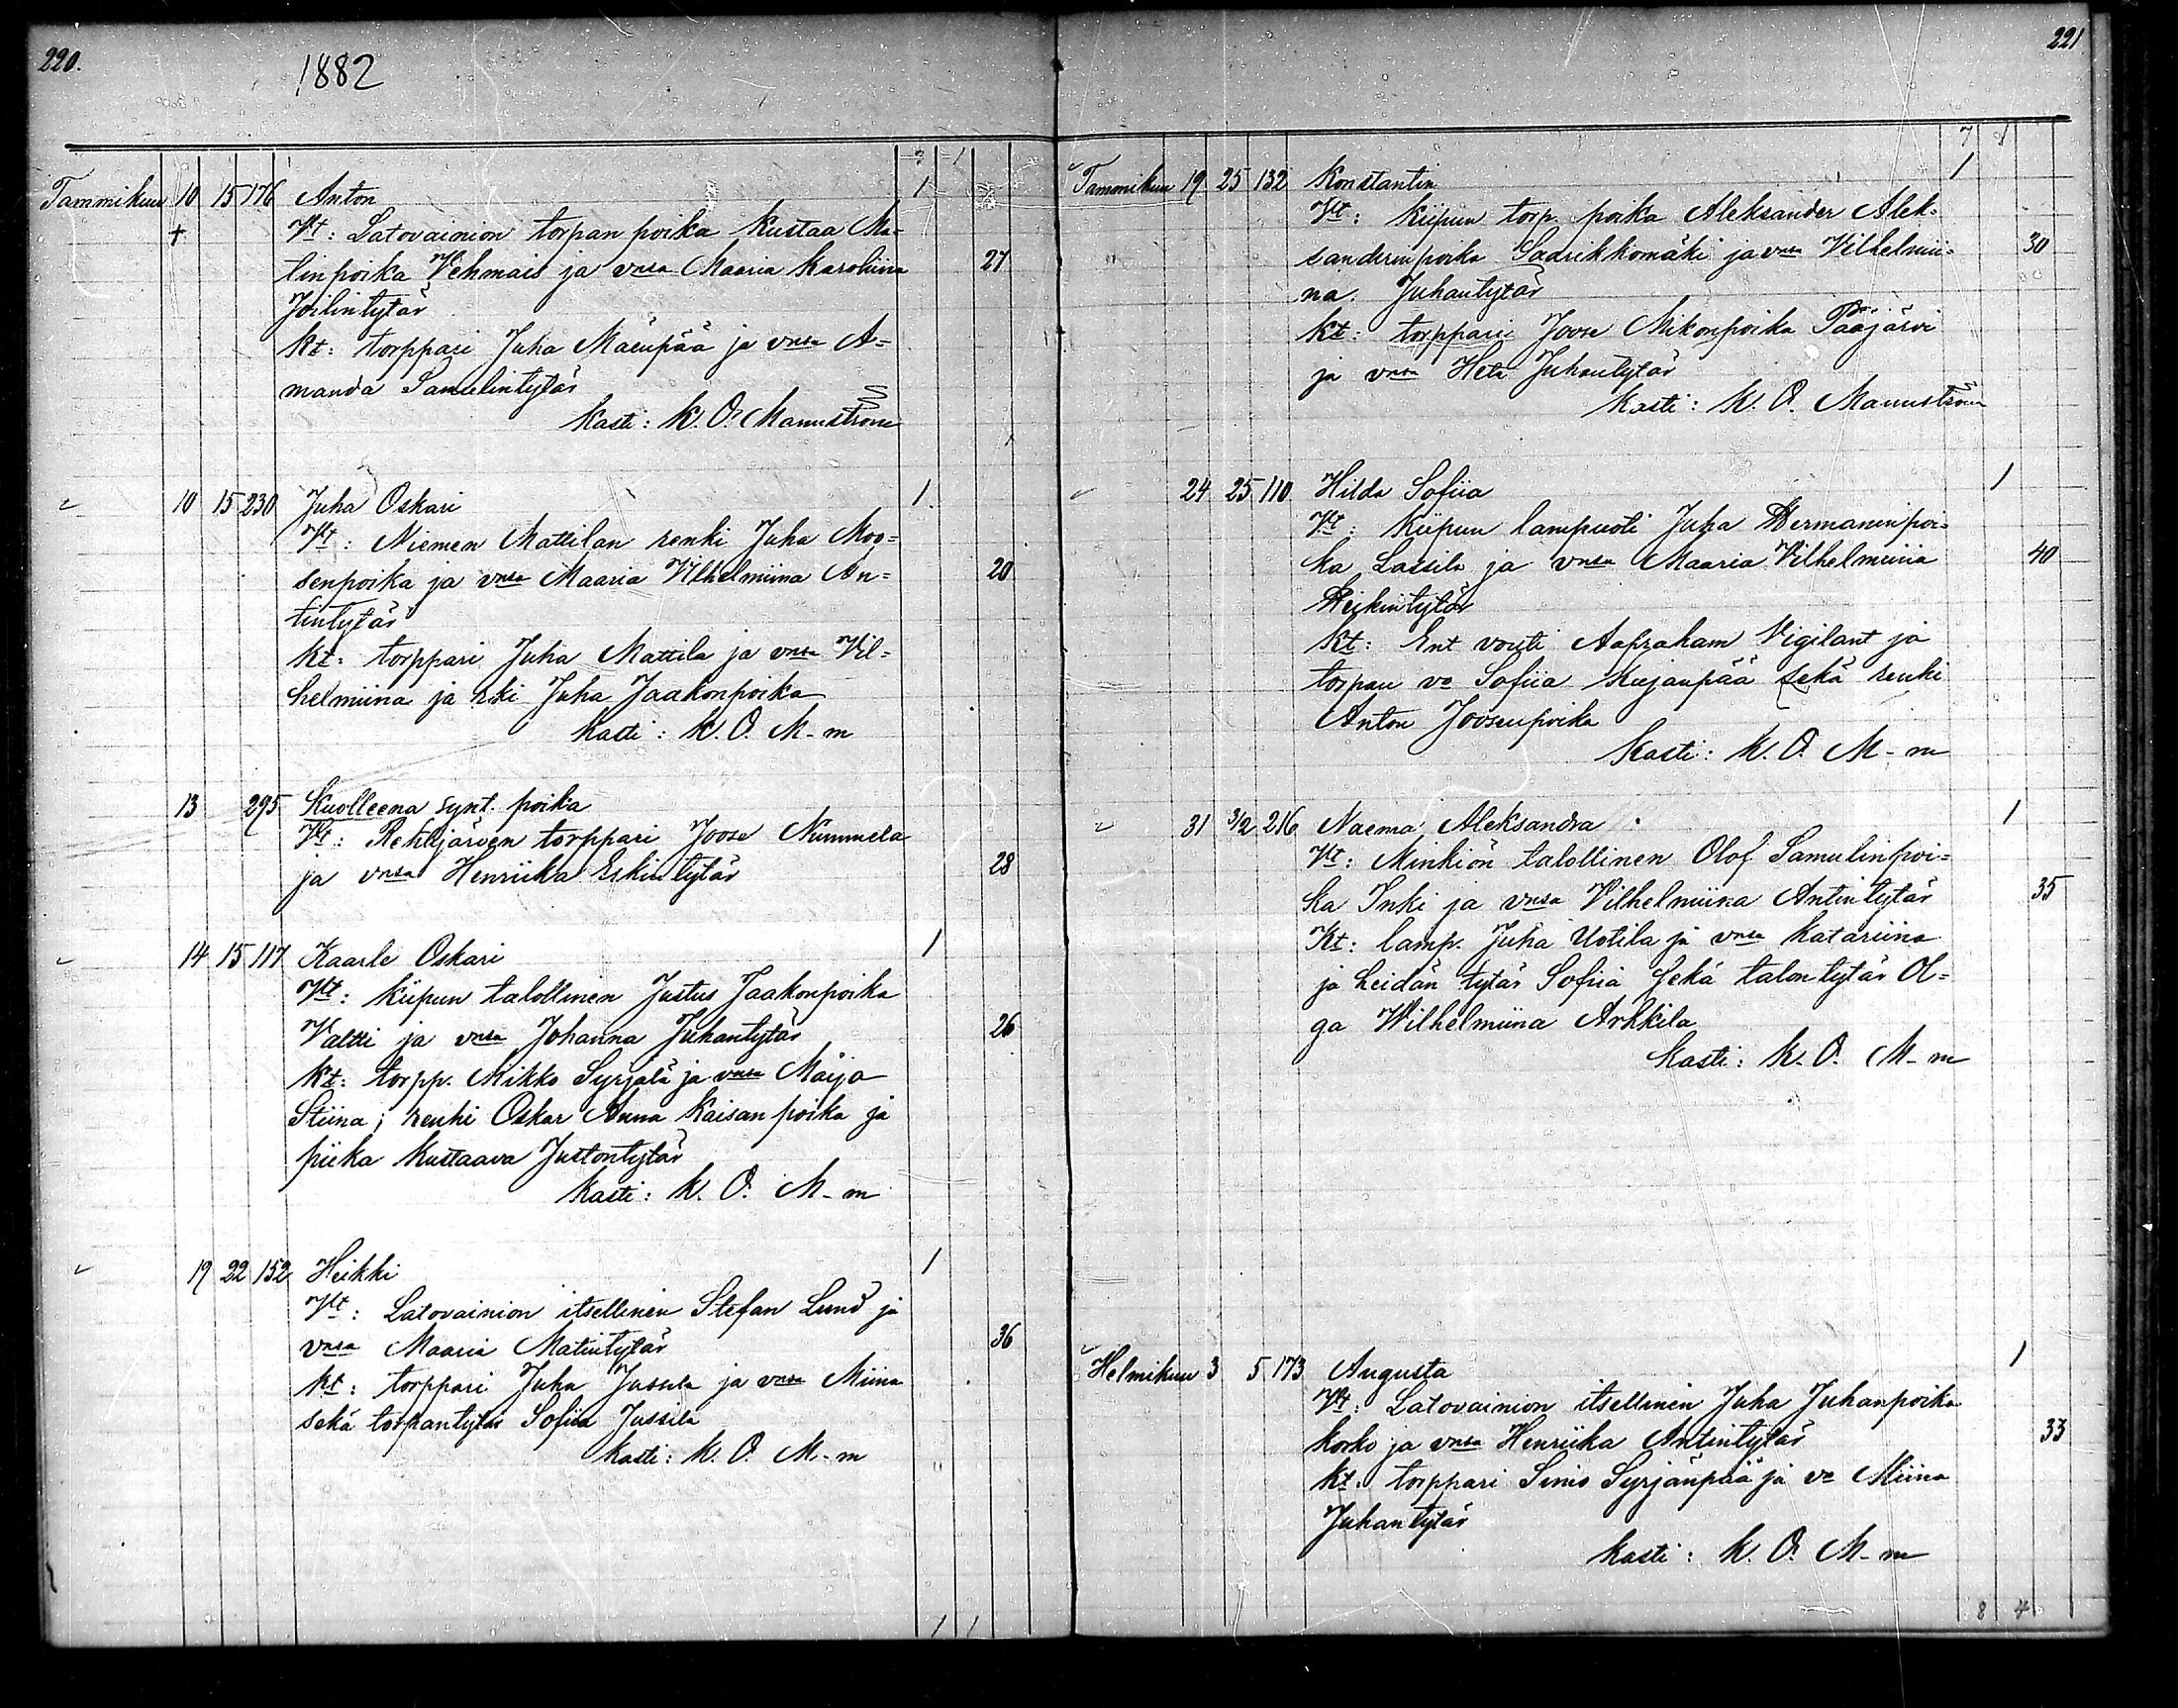 220.
1882
Tammikuu 10 15 176 Anton 1
+ Vt: Latovainion torpan poika Kustaa Ma=
tinpoika Vehmais ja vnsa Maaria Karoliina 27
Joilintytär
Kt: torppari Juha Mäenpää ja vnsa A=
manda Samulintytär
Kasti: K. O. Mannström
10 15 230 Juha Oskari 1
Vt: Niemen Mattilan renki Juha Moo=
senpoika ja vnsa Maaria Vilhelmiina An= 20
tintytär
Kt: torppari Juha Mattila ja vnsa Vil=
helmiina ja rki Juha Jaakonpoika
Kasti: K. O. M-m
13 295 Kuolleena synt. poika
Vt: Rehtijärven torppari Joose Nummela
ja vnsa Henriika Erkintytär 28
14 15 117 Kaarle Oskari 1
Vt: Kiipun talollinen Justus Jaakonpoika
Valtti ja vnsa Johanna Juhantytär 26
Kt: torpp. Mikko Syrjälä ja vnsa Maija
Stiina; renki Oskar Anna Kaisan poika ja
piika Kustaava Justontytär
Kasti: K. O. M-m
19 22 152 Heikki 1
Vt: Latovainion itsellinen Stefan Lund ja
vnsa Maaria Matintytär 36
Kt: torppari Juha Jussila ja vnsa Miina
sekä torpantytär Sofiia Jussila
Kasti: K. O. M-m
1 1
221
7 1
Tammikuu 19 25 132 Konstantin 1
Vt: Kiipun torp. poika Aleksander Alek=
sanderinpoika Saarikkomäki ja vnsa Vilhelmii= 30
na Juhantytär
Kt: torppari Joose Mikonpoika Pääjärvi
ja vnsa Heta Juhantytär
Kasti: K. O. Mannström
24 25 110 Hilda Sofiia 1
Vt: Kiipun lampuoti Juha Hermaninpoi=
ka Lassila ja vnsa Maaria Vilhelmiina 40
Heikintytär
Kt: Ent vouti Aapraham Vigilant ja
torpan va Sofiia Kujanpää sekä renki
Anton Joosenpoika
Kasti: K. O. M-m
31 3/2 216 Naema Aleksandra 1
Vt: Minkiön talollinen Olof Samulinpoi=
ka Inki ja vnsa Vilhelmiina Antintytär 35
Kt: lamp. Juha Uotila ja vnsa Katariina
ja heidän tytär Sofiia sekä talontytär Ol=
ga Wilhelmiina Arkkila
Kasti: K. O. M-m
Helmikuu 3 5 173 Augusta 1
Vt: Latovainion itsellinen Juha Juhanpoika
Korko ja vnsa Henriika Antintytär 33
Kt: torppari Simo Syrjänpää ja va Miina
Juhantytär
Kasti: K. O. M-m
8 4